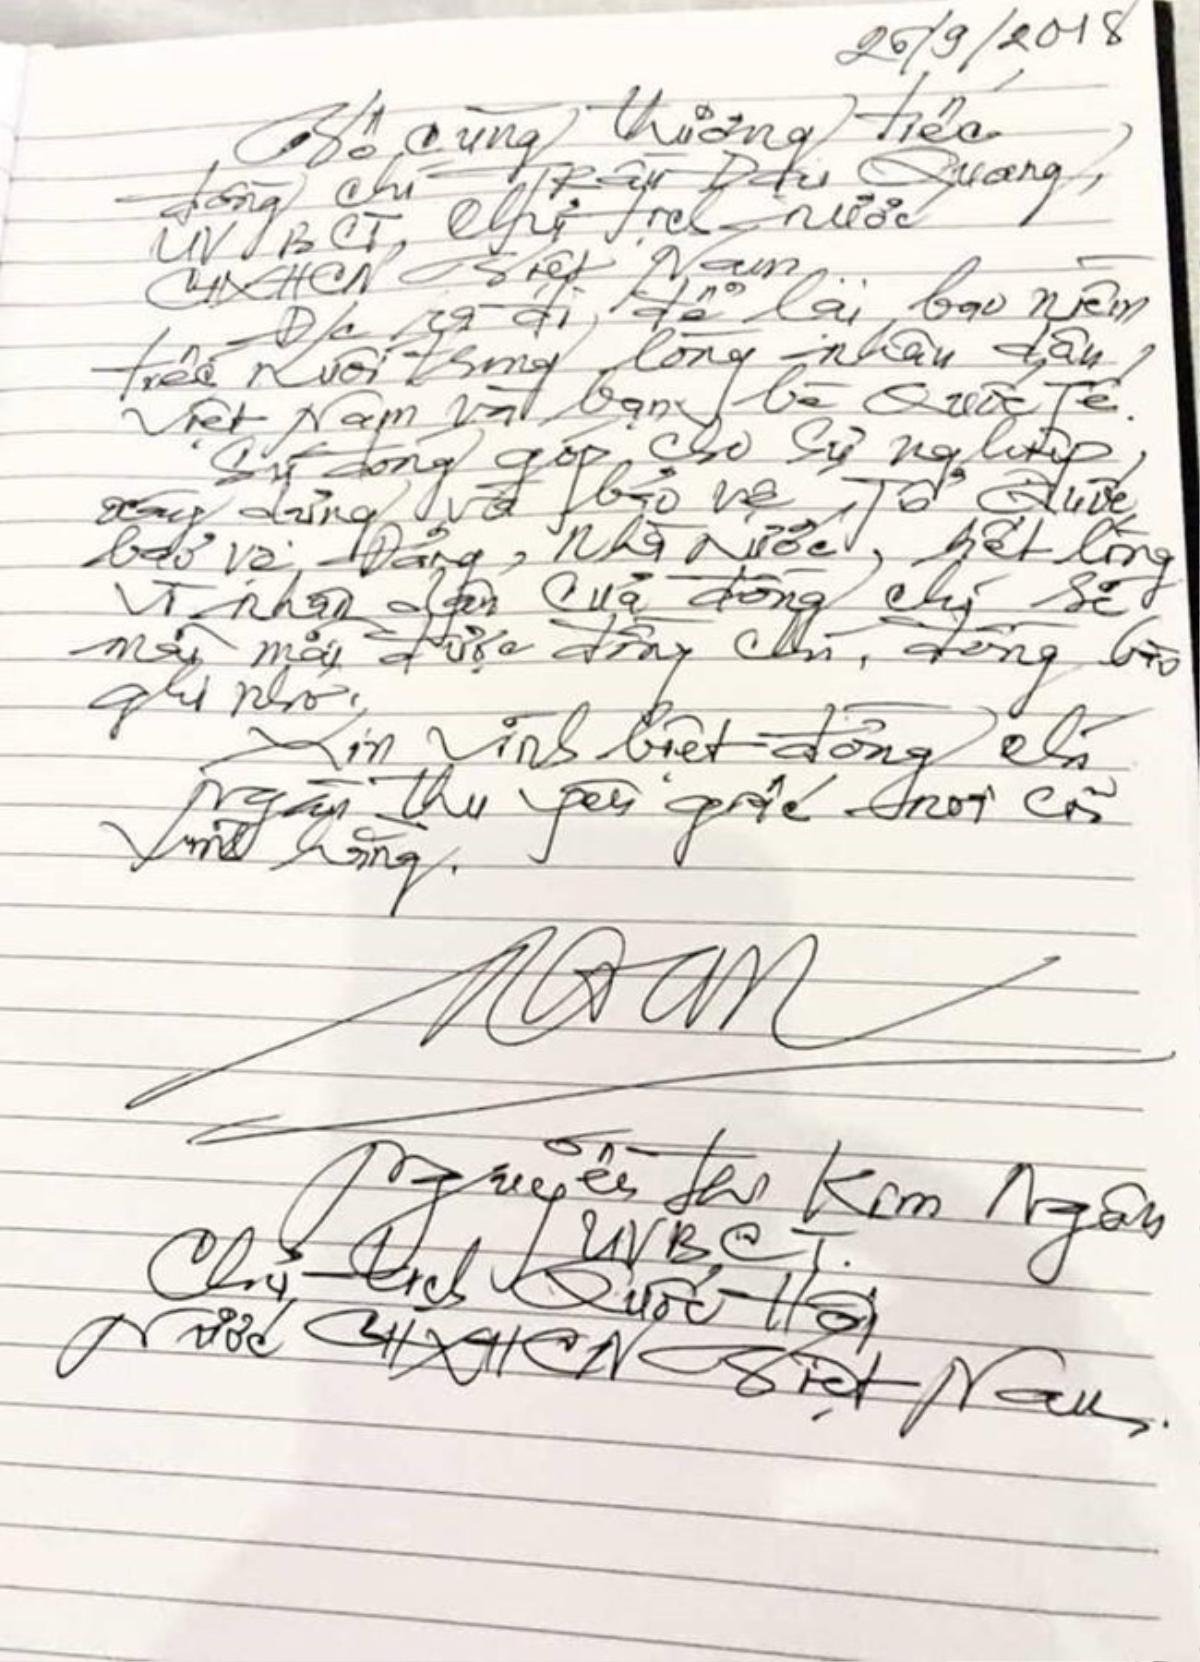 26/9/2018
Vô cùng thương tiếc
đồng chí Trần Đại Quang,
UVBCT, Chủ tịch nước
CHXHCN Việt Nam
Đ/c ra đi, để lại bao niềm
tiếc nuối trong lòng nhân dân
Việt Nam và bạn bè Quốc Tế.
Sự đóng góp cho sự nghiệp,
xây dựng và bảo vệ Tổ Quốc,
bảo vệ Đảng, Nhà Nước, hết lòng
vì nhân dân của đồng chí sẽ
mãi mãi được đồng chí, đồng bào
ghi nhớ.
Xin vĩnh biệt đồng chí
Ngàn thu yên giấc nơi cõi
vĩnh hằng.
Nguyễn Thị Kim Ngân
UVBCT.
Chủ tịch Quốc Hội
Nước CHXHCN Việt Nam.